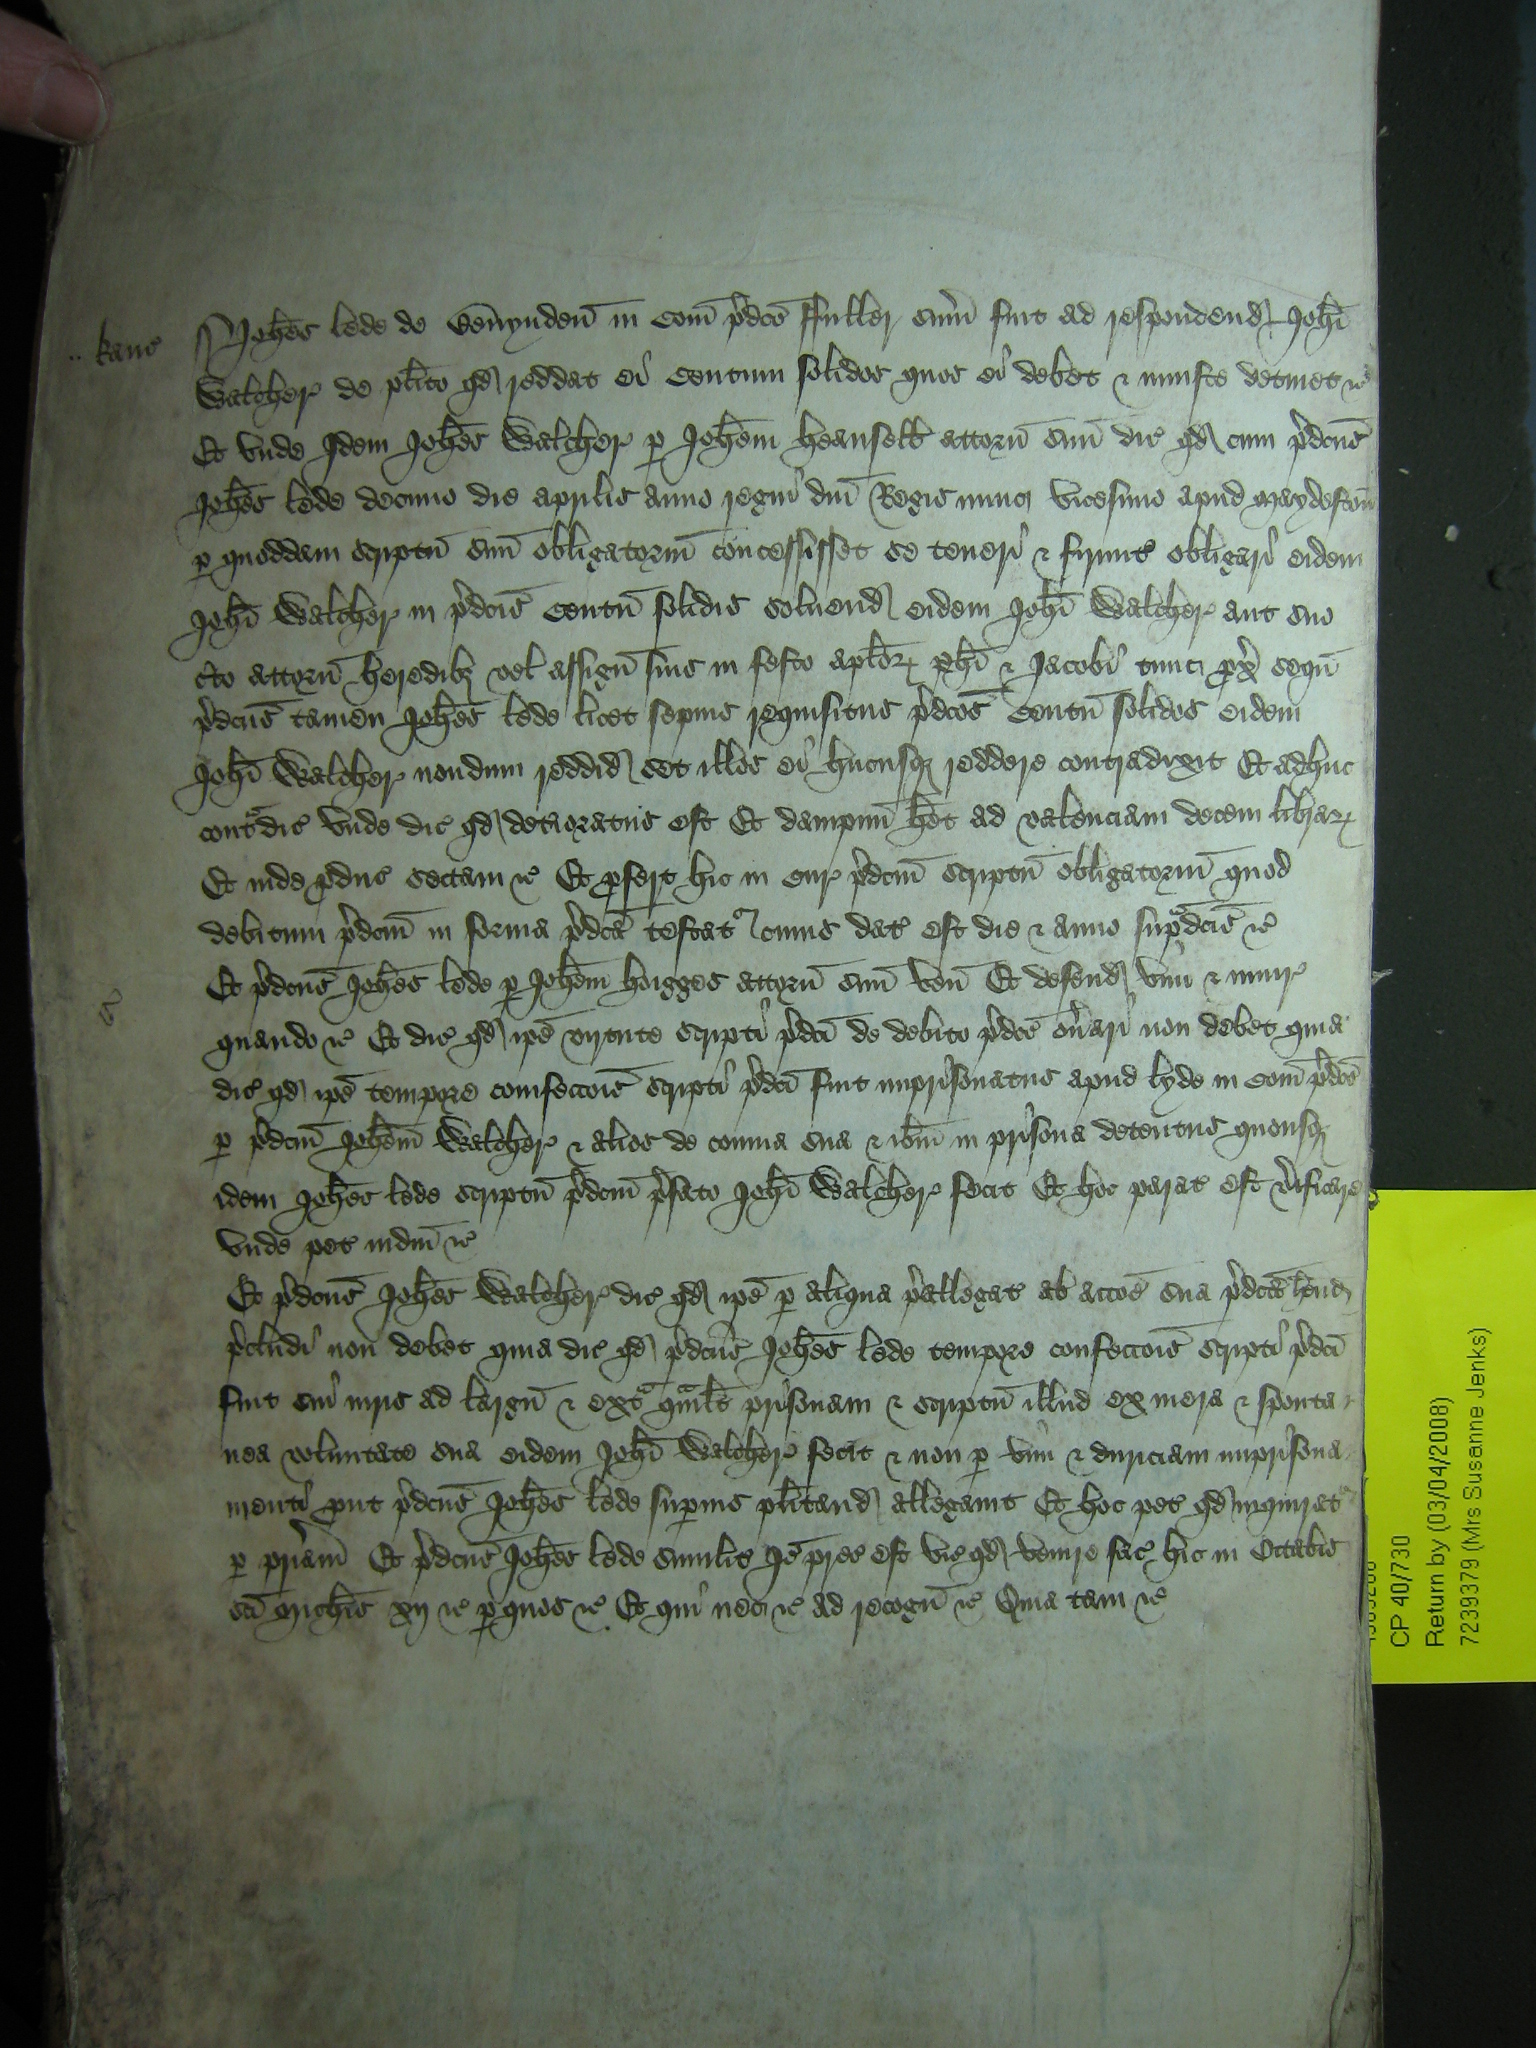 kanc Joh̄es lede de Ben̄ynden̄ in Com̄ p̄dc̄o ffuller sum̄ fuit ad respondend Joh̄i
Walcher de pl̄ito qd reddat ei Centum solidos quos ei debet & iniuste detinet &c
Et vnde Idem Joh̄es Walcher p Joh̄em heansell attorn̄ suū dic qd cum p̄dcūs
Joh̄es lede decimo die aprilis anno regni dn̄i Regis nunc vicesimo apud Maydeston̄
p quoddam scriptū suū obligatoriū concessisset se teneri & firmit obligari eidem
Joh̄i Walcher in p̄dcīs Centū solidis soluend eidem Joh̄i Walcher aut suo
c̄to attorn̄ heredibȝ vel assign̄ suis in festo apl̄oꝝ Ph̄i & Jacobi tunc px̄ seqū
p̄dcūs tamen Joh̄es lede licet sepius requisitus p̄dcōs Centū solidos eidem
Joh̄i Walcher nondum reddid set illos ei hucusqȝ reddere contradixit Et adhuc
contᵃdic vnde dic qd deterioratus est Et dampnū h̄et ad valenciam decem librarꝝ
Et inde pduc sectam &c Et pfert hic in cur p̄dcm̄ scriptū obligatoriū quod
debitum p̄dcm̄ in forma p̄dcā testatʳ cuius dat est die & anno supᵃdcīs &c
Et p̄dcūs Joh̄es lede p Joh̄em hoigges attorn̄ suū ven̄ Et defend vim & iniur
quando &c Et dic qd ip̄e virtute scripti p̄dcī de debito p̄dcō on̄ari non debet quia
dic qd ip̄e tempore confeccōis scripti p̄dcī fuit imprisonatus apud lyde in Com̄ p̄dcō
p p̄dcm̄ Joh̄em Walcher & alios de couina sua & ib̄m in prisona detentus quousqȝ
idem Joh̄es lede scriptū p̄dcm̄ p̄fato Joh̄i Walcher fecit Et hoc parat est v̄ificare
vnde pet iudm̄ &c
Et p̄dcūs Joh̄es Walcher dic qd ip̄e p aliqua p̄allegat ab accōe sua p̄dcā h̄end
p̄cludi non debet quia dic qd p̄dcūs Joh̄es lede tempore confeccōis scripti p̄dcī
fuit sui iuris ad largū & extᵃ qᵃml̄t prisonam & scriptū illud ex mera & sponta
nea voluntate sua eidem Joh̄i Walcher fecit & non p vim & duriciam imprisona
menti put p̄dcūs Joh̄es lede superius pl̄itand allegauit Et hoc pet qd inquiratʳ
p pr̄iam Et p̄dcūs Joh̄es lede similit Iō prec est vic qd venire fac hic in Octabis
scī Mich̄is xij &c p quos &c Et qui nec &c ad recogn̄ &c Quia tam &c
CP 40/730
Return by (03/04/2008)
7239379 (Mrs Susanne Jenks)